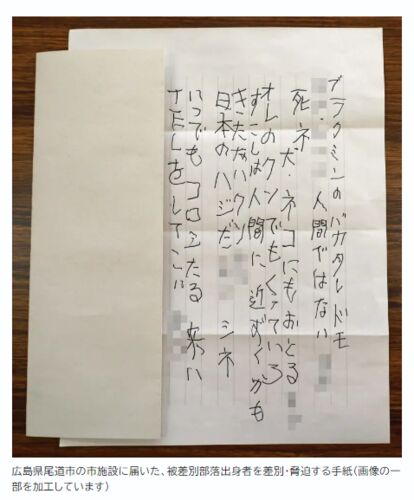 ブラクミンのバカタレドモ
人間ではない
死ネ 犬、ネコにもおとる
オレのクソでもくっていろ
すこしは人間に近ずくかも
きたないクソ
日本のハジだ シネ
いつでもコロシたる 来い
広島県尾道市の市施設に届いた、被差別部落出身者を差別・脅迫する手紙(画像の一
部を加工しています)